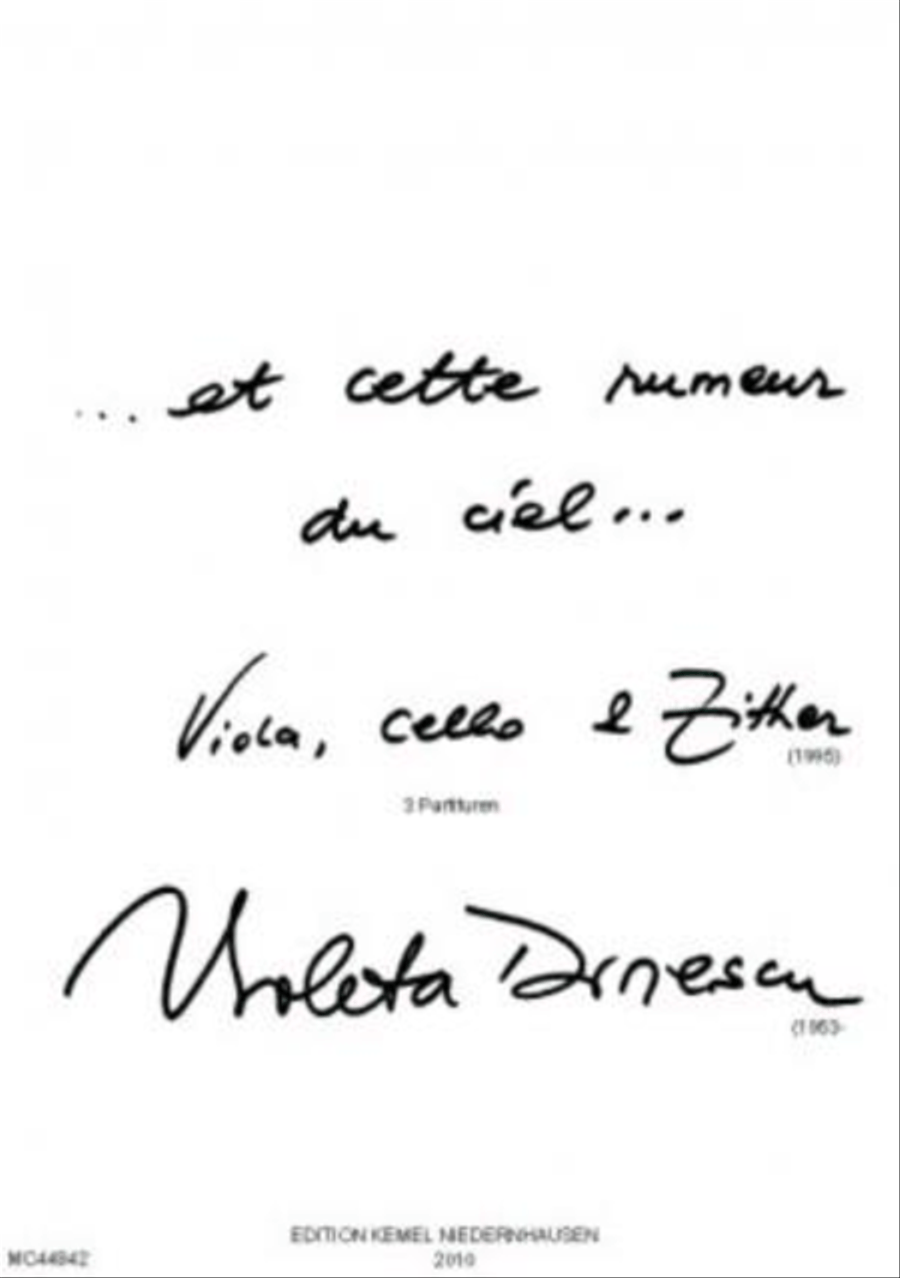 ...et cette rumeur
du ciel...
Viola, cello & Zither
(1995)
3 Partituren
Violeta Dinescu
(1953-
EDITION KEMEL NIEDERNHAUSEN
2010